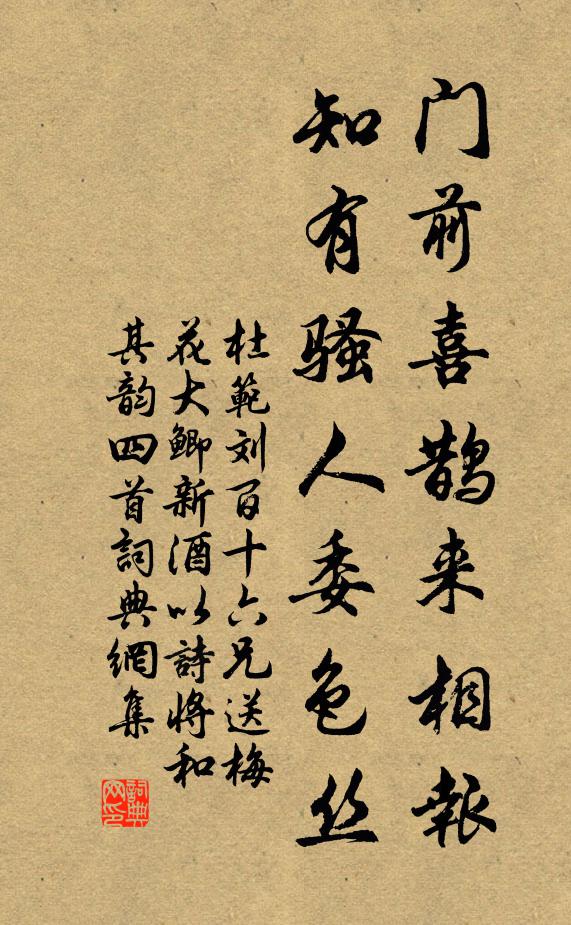 门前喜鹊来相報
知有骚人委色丝
杜範刘百十六兄送梅
花大鲫新酒以詩將和
其韵四首詞典網集
詞典网印